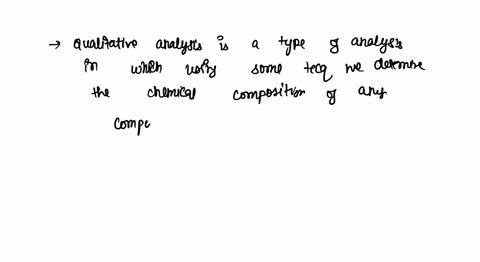 → Qualitative analysis is a type of analysis
in which using some tecq we determine
the chemical composition of any
compo